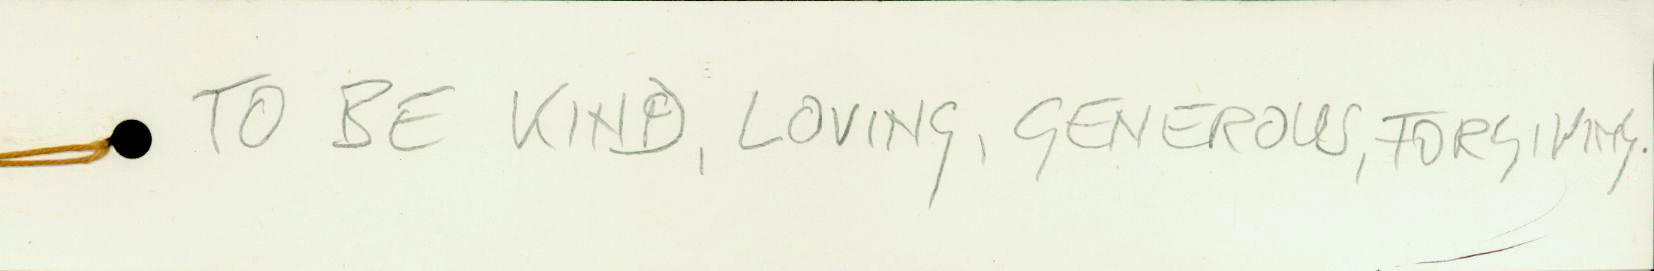 TO BE KIND, LOVING, GENEROUS, FORGIVING.